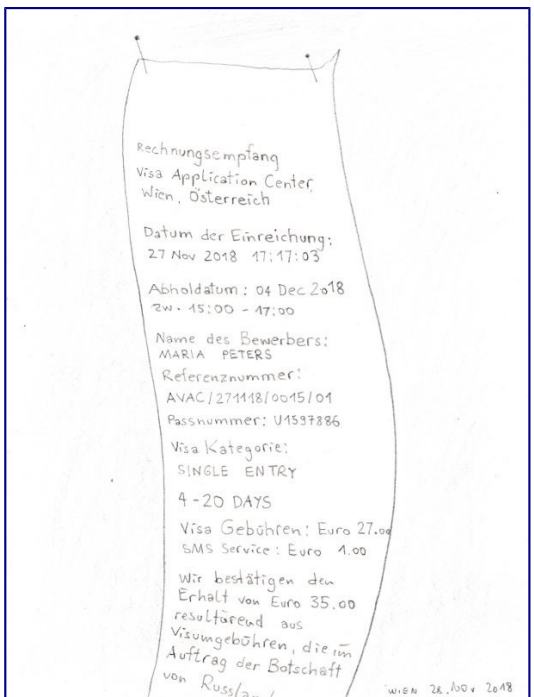 Rechnungsempfang
Visa Application Center,
Wien, Österreich
Datum der Einreichung:
27 Nov 2018 17:17:03
Abholdatum: 04 Dec 2018
zw. 15:00 - 17:00
Name des Bewerbers:
MARIA PETERS
Referenznummer:
AVAC/271118/0015/01
Passnummer: U1597886
Visa Kategorie:
SINGLE ENTRY
4-20 DAYS
Visa Gebühren: Euro 27.00
SMS Service: Euro 1.00
Wir bestätigen den
Erhalt von Euro 35.00
resultierend aus
Visumgebühren, die im
Auftrag der Botschaft
von
WIEN 28. Nov 2018